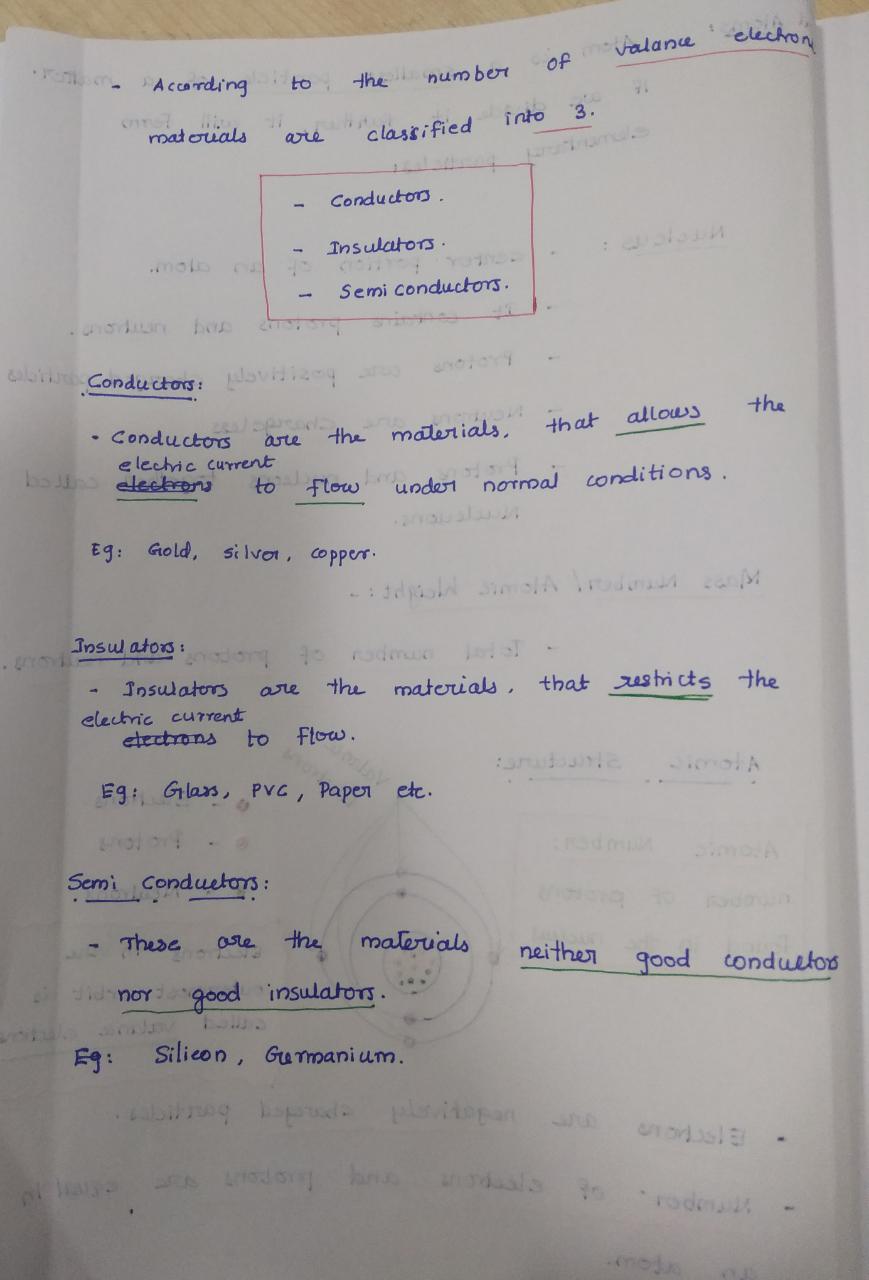 - According to the number of valance electron
materials are classified into 3.
- Conductors.
- Insulators.
- Semi conductors.
Conductors:
- Conductors are the materials, that allows the
electric current
electrons to flow under normal conditions.
Eg: Gold, silver, copper.
Insulators:
- Insulators are the materials, that restricts the
electric current
electrons to flow.
Eg: Glass, PVC, Paper etc.
Semi Conductors:
- These are the materials neither good conductors
nor good insulators.
Eg: Silicon, Germanium.